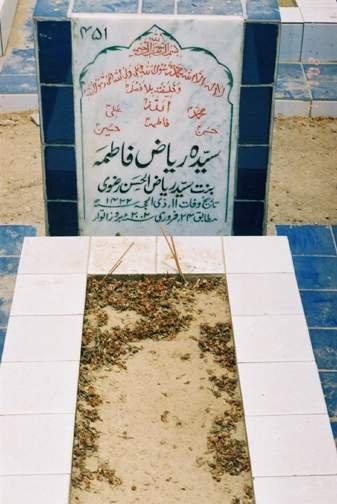 ۴۵۱
بسم اللہ الرحمن الرحیم
لا الہ الا اللہ محمد رسول اللہ علی ولی اللہ وصی رسول اللہ
وخلیفتہ بلا فصل
محمدؐ اللہ علیؑ
حسنؑ فاطمہؑ حسینؑ
سیّدہ ریاض فاطمہ
بنت سیّد ریاض الحسن رضوی
تاریخ وفات ۱۱، ذی الحجہ ۱۴۲۲ھ
مطابق ۲۴، فروری ۲۰۰۲ء بروز اتوار